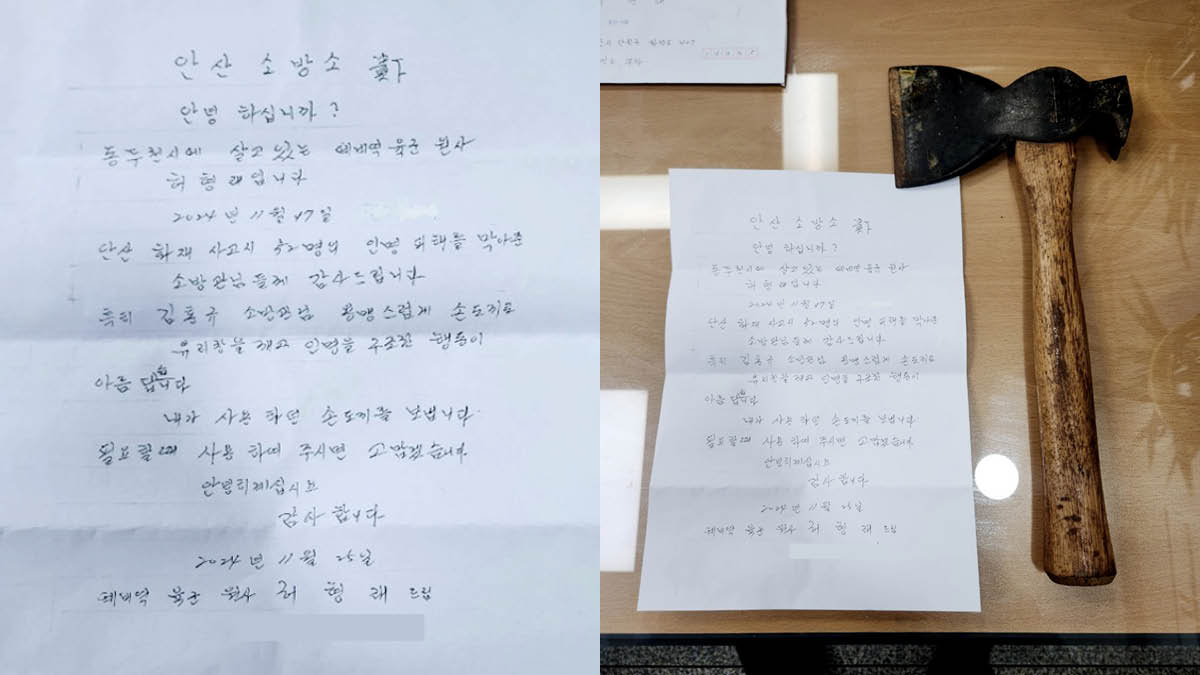 안산 소방소 貴下
안녕 하십니까?
동두천시에 살고 있는 예비역 육군 원사
허 형 래입니다
2024년 11월 17일
안산 화재 사고시 52명의 인명 피해를 막아준
소방관님들께 감사드립니다
특히 김홍구 소방관님 용맹스럽게 손도끼로
유리창을 깨고 인명을 구조한 행동이
아름 답습니다
내가 사용 하던 손도끼를 보냅니다.
필요할때 사용 하여 주시면 고맙겠습니다.
안녕히계십시요
감사 합니다
2024년 11월 25일
예비역 육군 원사 허 형 래 드림
안산 소방소 貴下
안녕 하십니까?
동두천시에 살고 있는 예비역 육군 원사
허 형 래입니다
2024년 11월 17일
안산 화재 사고시 52명의 인명 피해를 막아준
소방관님들께 감사드립니다
특히 김홍구 소방관님 용맹스럽게 손도끼로
유리창을 깨고 인명을 구조한 행동이
아름 답습니다
내가 사용 하던 손도끼를 보냅니다.
필요할때 사용 하여 주시면 고맙겠습니다.
안녕히계십시요
감사 합니다
2024년 11월 25일
예비역 육군 원사 허 형 래 드림